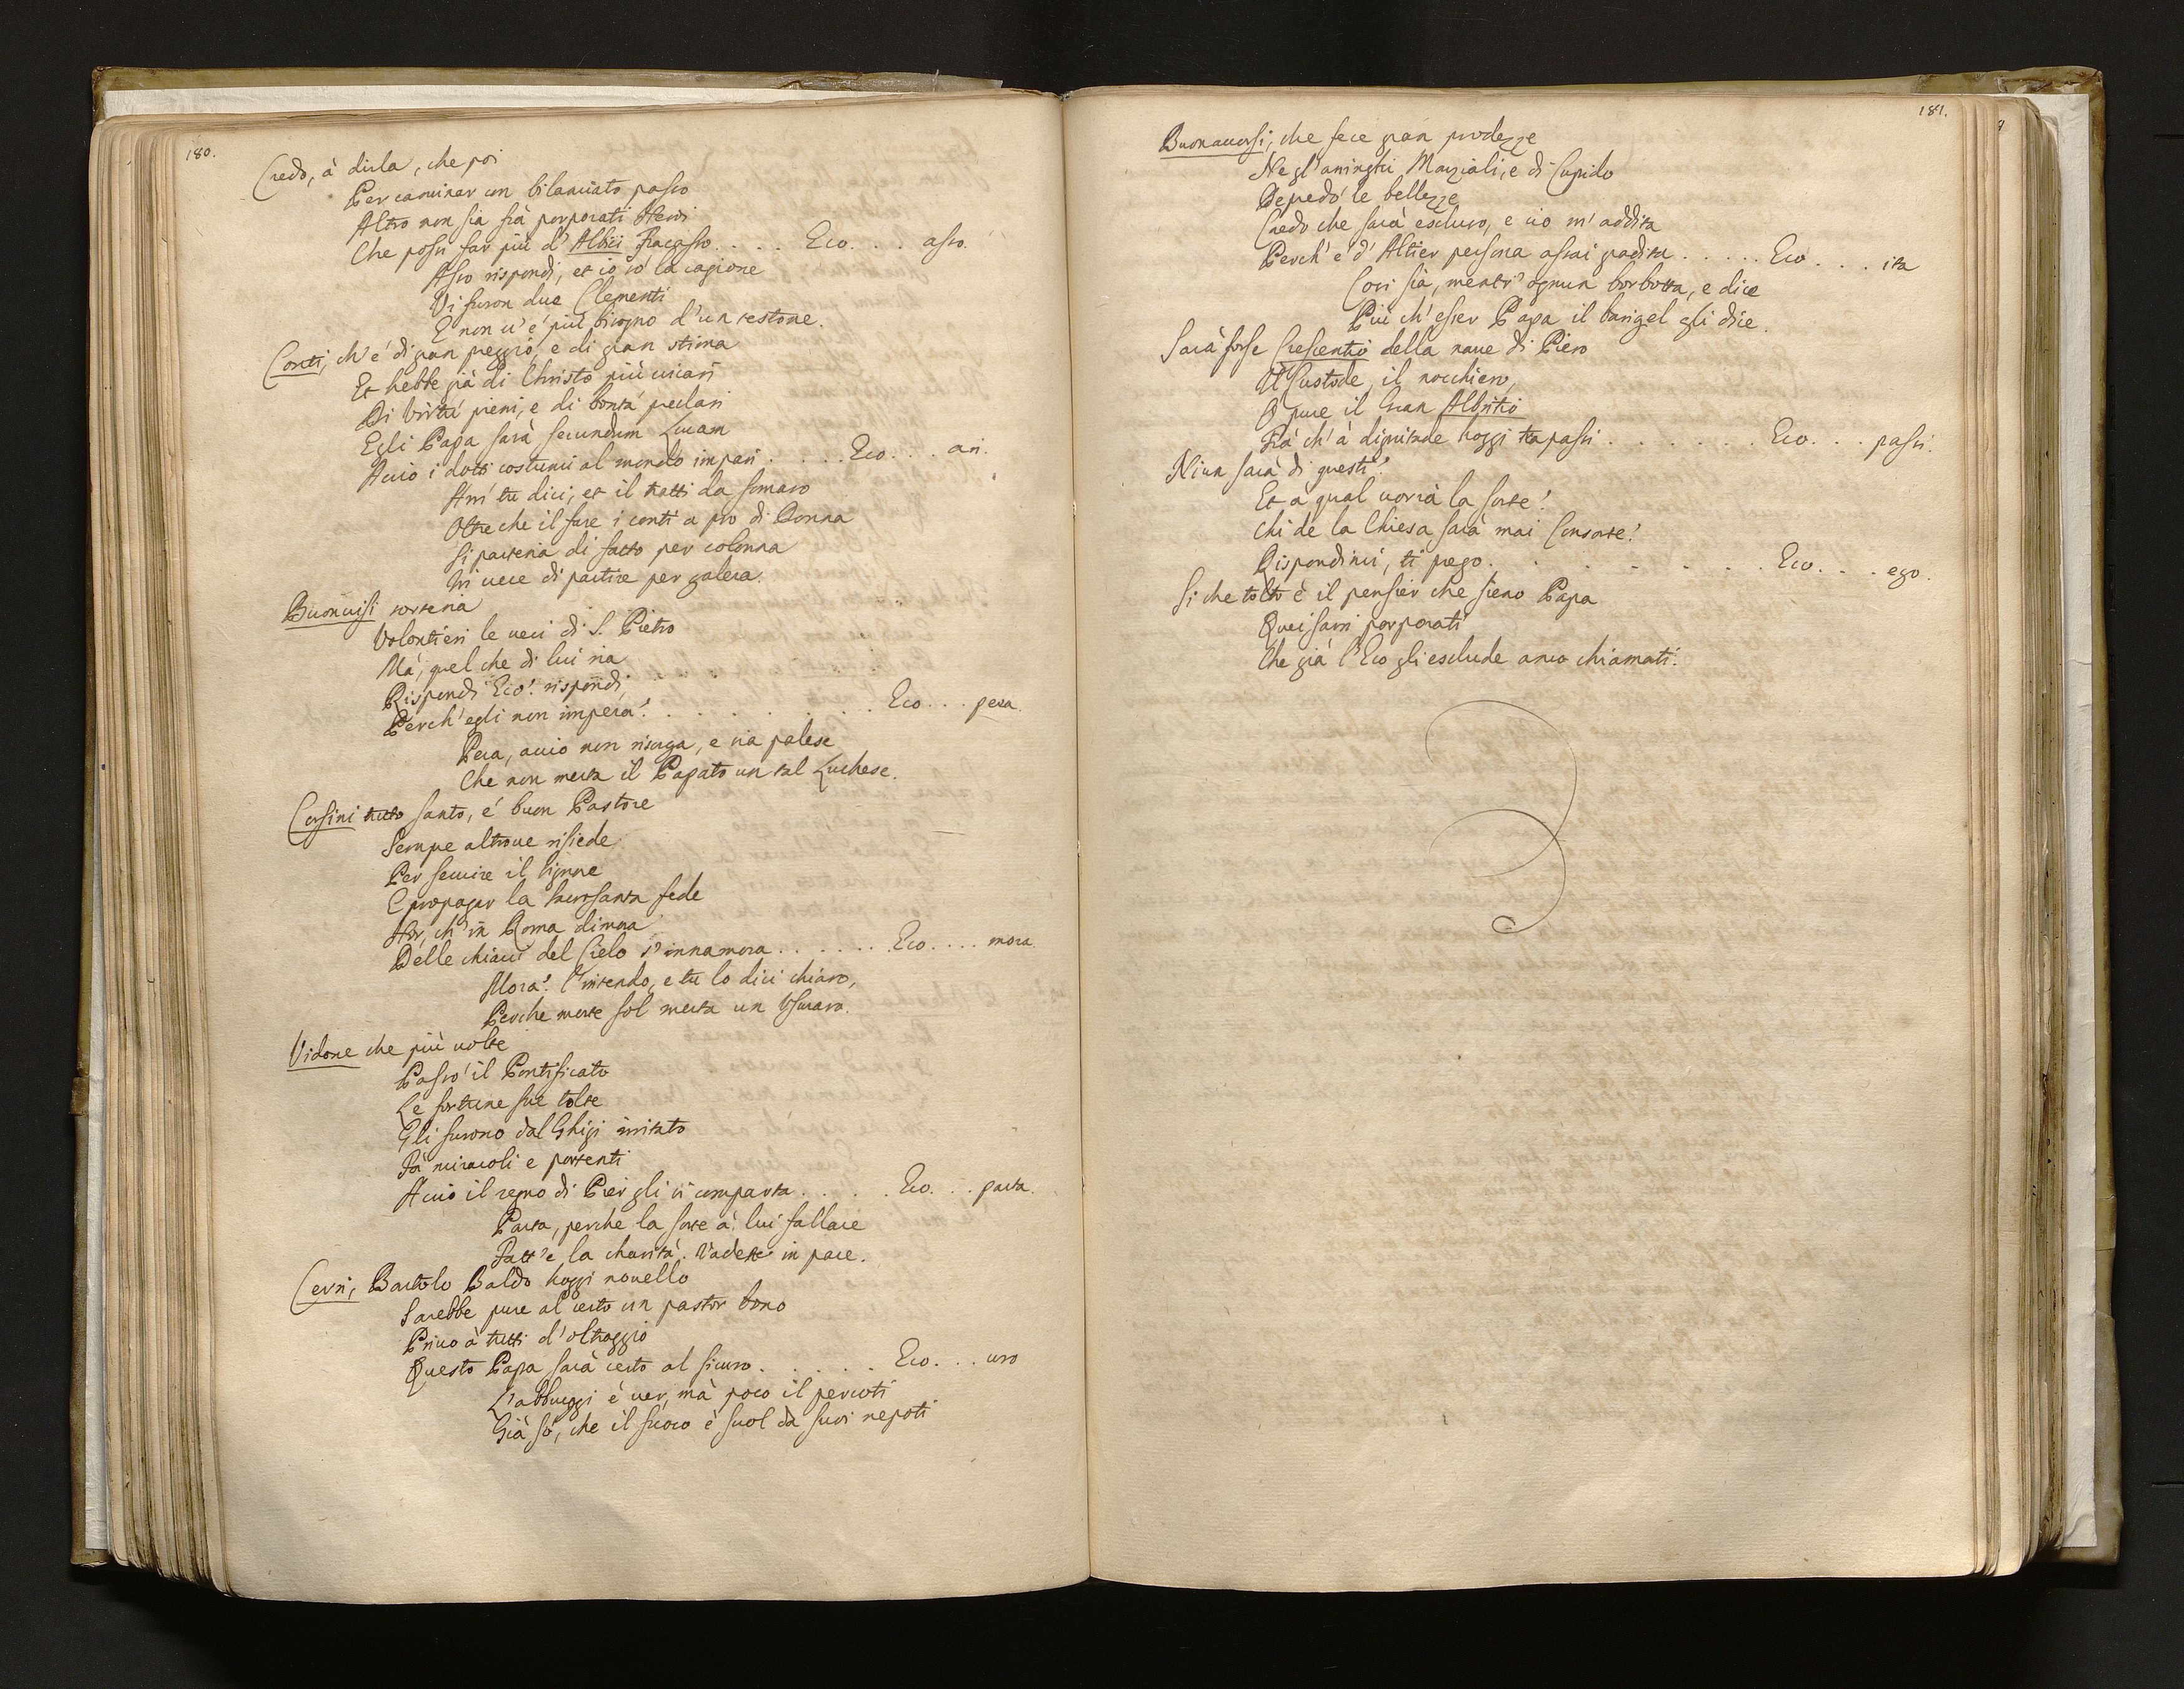 180.
Credo, à dirla, che poi
Per caminar con bilanciato passo
Altro non sia frà porporati Heroi
Che possi far più d'Albici Fracasso.... Eco... asso.
Asso rispondi, et io sò la cagione
Vi furon due Clementi
E non v'é più bisogno d'un testone.
Conti, ch'é di gran preggio, e di gran stima
Et hebbe già di Christo più vicarij
Di Virtù pieni, e di bontà preclari
Egli Papa sarà secundum Lucam
Acciò i dotti costumi al mondo impari.... Eco... ari.
Arri tu dici, et il tratti da somaro
Oltre che il fare i conti a pro di Donna
Si parteria di fatto per colonna
In vece di partire per galera.
Buonuisi torteria
Volontieri le veci di S. Pietro
Mà, quel che di lui sia
Rispondi Eco! rispondi,
Perch'egli non impera?........ Eco... pera
Pera, acciò non risorga, e sia palese
Che non merta il Papato un tal Luchese.
Corsini tutto santo, é buon Pastore
Sempre altroue risiede
Per seruire il Signore
E propagar la sacrosanta fede
Hor, ch'in Roma dimora
Delle chiaui del Cielo s'innamora...... Eco.... mora.
Mora? l'intendo, e tu lo dici chiaro,
Perche morte sol merta un Vsuraro.
Vidone che più uolte
Passò il Pontificato
Le fortune sue tolte
Gli furono dal Ghigi irritato
Fà miracoli e portenti
Acciò il regno di Pier gli si comparta.... Eco... parta.
Parta, perche la sorte à lui fallace
Fatt'e la charità. Vadette in pace.
Cerri, Bartolo Baldo hoggi nouello
Sarebbe pure al certo un pastor bono
Priuo à tutti d'oltraggio
Questo Papa sarà certo al sicuro..... Eco... uro
L'abbruggi è uer, mà poco il percoti
Già sò, che il fuoco è suol da suoi nepoti
181.
Buonaccorsi, che fece gran prodezze
Negl'aringhi Marziali, e di Cupido
Depredò le bellezze
Credo che sarà escluso, e ciò m'addita
Perch'è d'Altier persona assai gradita..... Eco... ita
Cosi sia, mentr'ognun borbotta, e dice
Più ch'esser Papa il barigel gli dice.
Sarà forse Crescentio della naue di Piero
Il Custode, il nocchiero,
O pure il Gran Albritio
Frà ch'à dignitade hoggi trapassi....... Eco... passi.
Niun sarà di questi?
Et à qual uorrà la sorte!
Chi de la Chiesa sarà mai Consorte!
Rispondimi, ti prego........ Eco... ego.
Si che tolto è il pensier che sieno Papa
Quei sacri porporati
Che già l'Eco gli esclude anco chiamati.